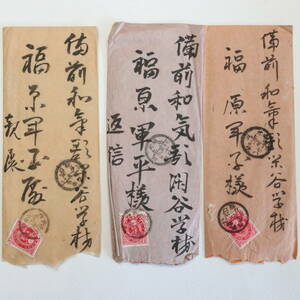 備前和気郡閑谷学校
福原軍平様
返信
備前和氣郡閑谷学校
福原軍平様
備前和氣郡閑谷学校
福原軍平殿
親展